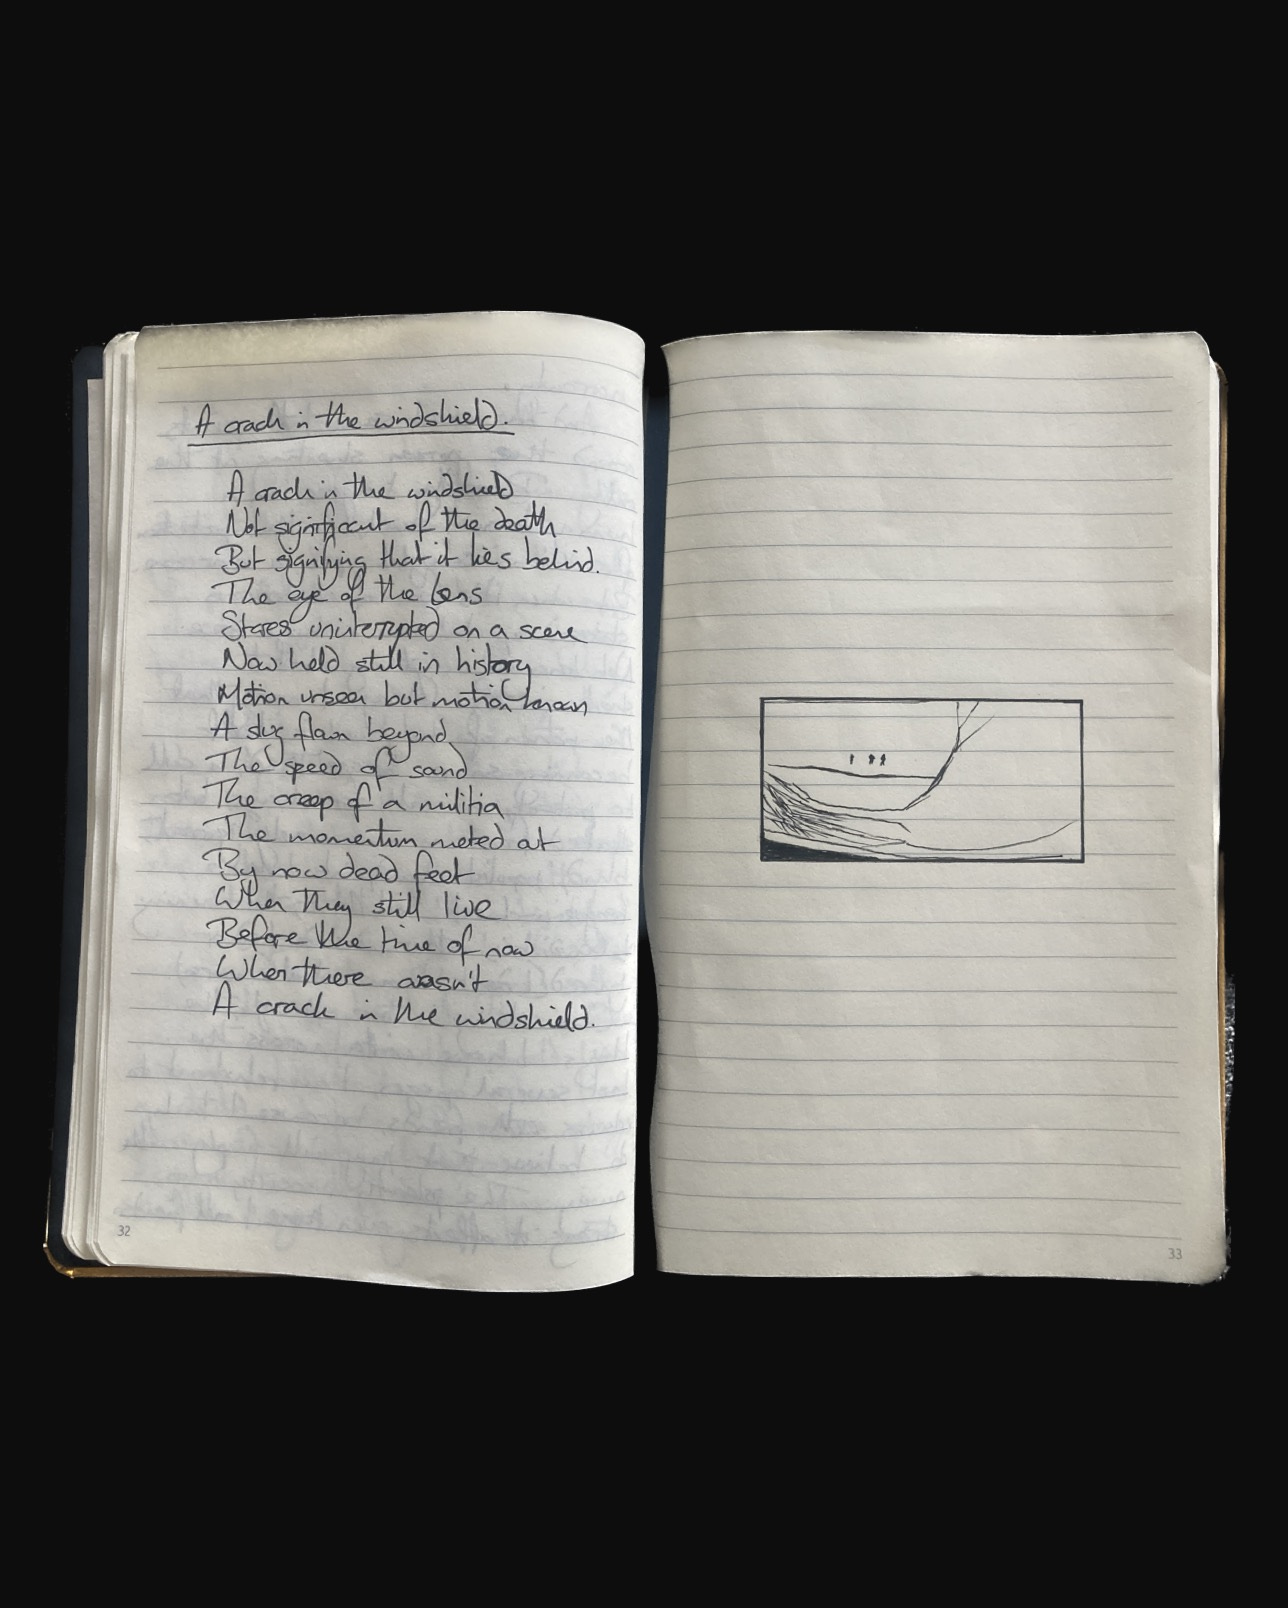 A crack in the windshield.
A crack in the windshield
Not significant of the death
But signifying that it lies behind.
The eye of the lens
Stares uninterrupted on a scene
Now held still in history
Motion unseen but motion known
A slug flown beyond
The speed of sound
The creep of a militia
The momentum meted out
By now dead feet
When they still live
Before the time of now
When there wasn't
A crack in the windshield.
32
33